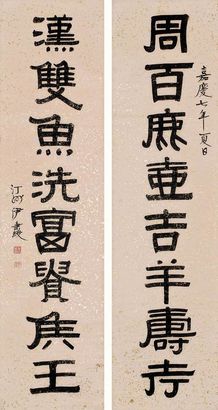 嘉慶七年夏日
周百鹿壺吉羊壽考
漢雙魚洗富貴侯王
汀州伊秉綬